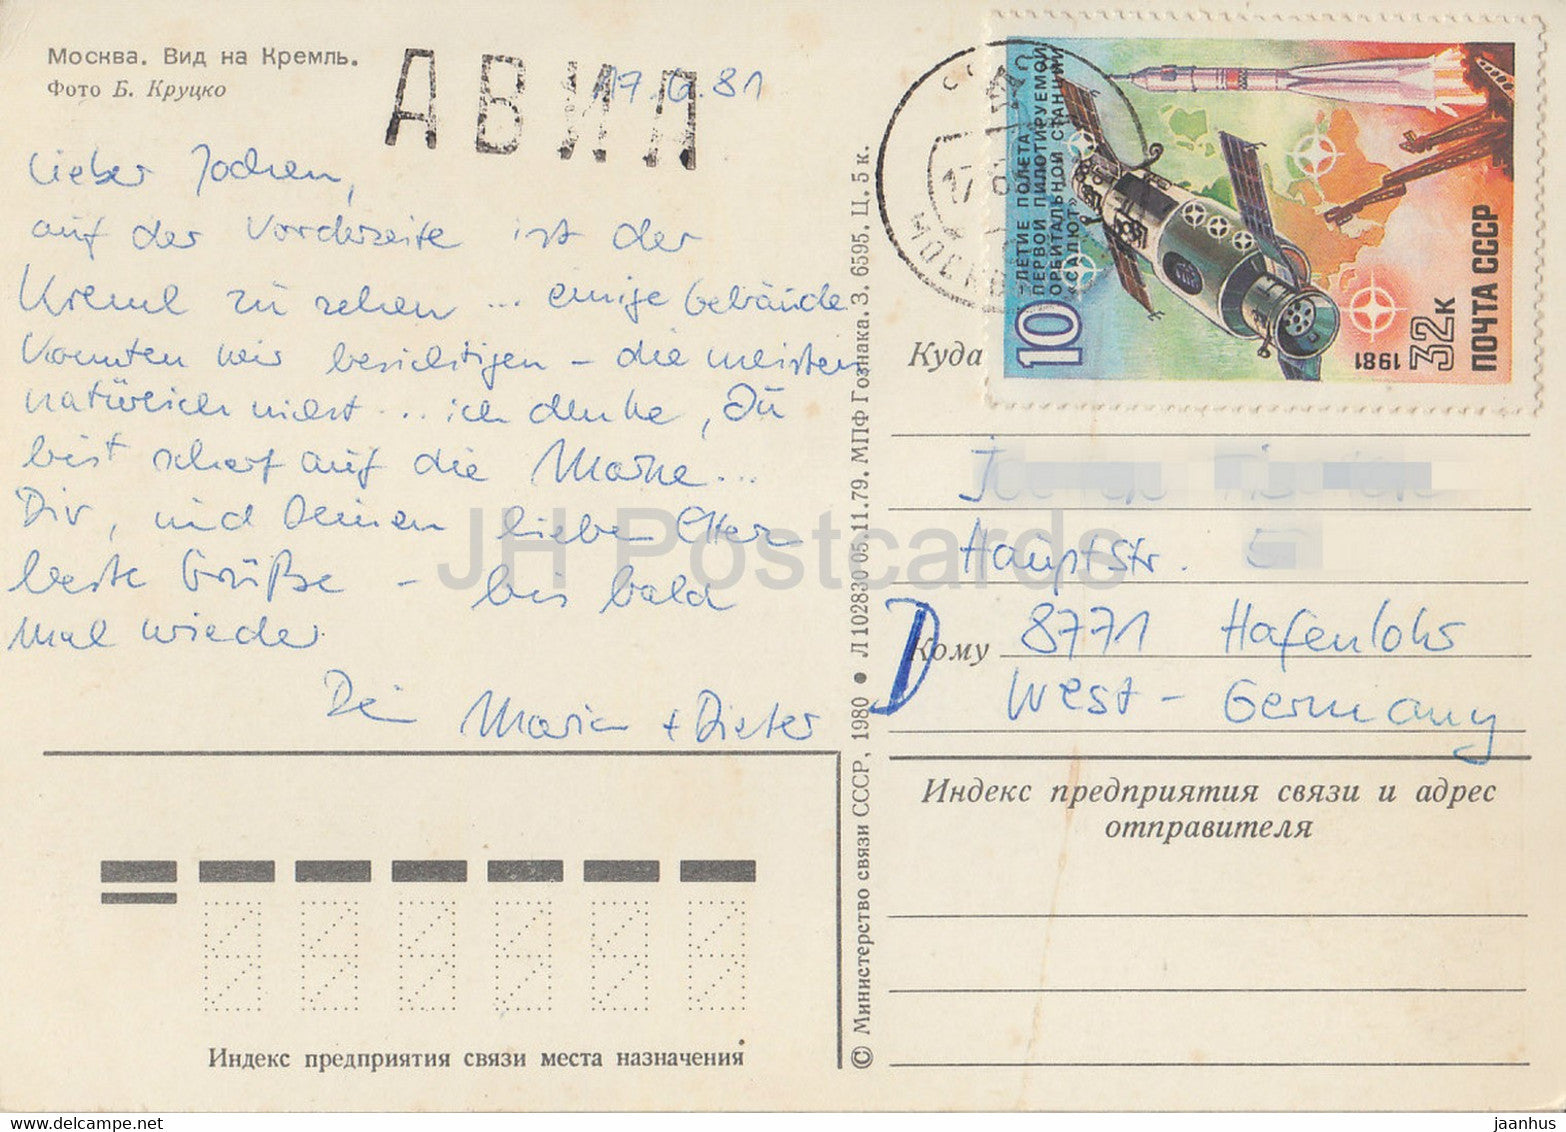 Москва. Вид на Кремль.
Фото Б. Круцко
АВИА
17.6.81
Lieber Jochen,
auf der Vorderseite ist der
Kreml zu sehen ... einige Gebäude
konnten wir besichtigen – die meisten
natürlich nicht ... ich denke, Du
bist scharf auf die Marke ...
Dir, und Deinen lieben Eltern
beste Grüße – bis bald
mal wieder
Maria + Dieter
Индекс предприятия связи места назначения
© Министерство связи СССР, 1980 • Л 102830 05.11.79. МПФ Гознака. З. 6595. Ц. 5 к.
10
-ЛЕТИЕ ПОЛЕТА
ПЕРВОЙ ПИЛОТИРУЕМОЙ
ОРБИТАЛЬНОЙ СТАНЦИИ
«САЛЮТ»
1981
32к
ПОЧТА СССР
МОСКВА
Куда
Hauptstr.
D
Кому
8771 Hafenlohr
West-Germany
Индекс предприятия связи и адрес
отправителя
JH Postcards
www.delcampe.net
jaanhus